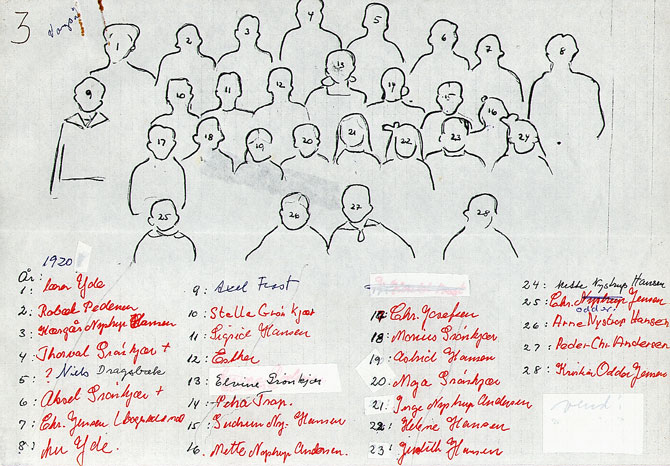 3
1
2
3
4
5
6
7
8
9
10
11
12
13
14
15
16
17
18
19
20
21
22
23
24
25
26
27
28
1920
År:
1: Lærer Yde
2: Robert Pedersen
3: Nystrup Hansen
4: Thorval Grønkjær +
5: ? Niels Dragsbæk
6: Aksel Grønkjær +
7: Chr. Jensen
8: Yde.
9: Axel Frost
10: Stella Grønkjær
11: Sigrid Hansen
12: Esther
13: Elvine Grønkjær
14: Petra Trap.
15: Gudrun Ny. Hansen
16. Mette Nystrup Andersen.
17 Chr. Josefsen
18 Marius Grønkjær
19: Astrid Hansen
20. Maja Grønkjær
21: Inge Nystrup Andersen
22: Helene Hansen
23: Judith Hansen
24: Nystrup Hansen
25: Chr. Nystrup Jensen
odder!
26: Arne Nystrup Hansen
27: Peder Chr. Andersen
28: Kristian Odder Jensen
vend!